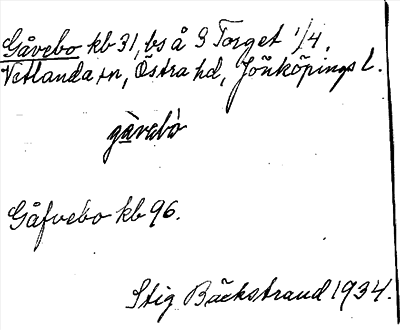 Gåvebo kb 31, bs å S Torget 1/4.
Vetlanda sn, Östra hd, Jönköpings l.
gàvebò
Gåfvebo kb 96.
Stig Bäckstrand 1934.